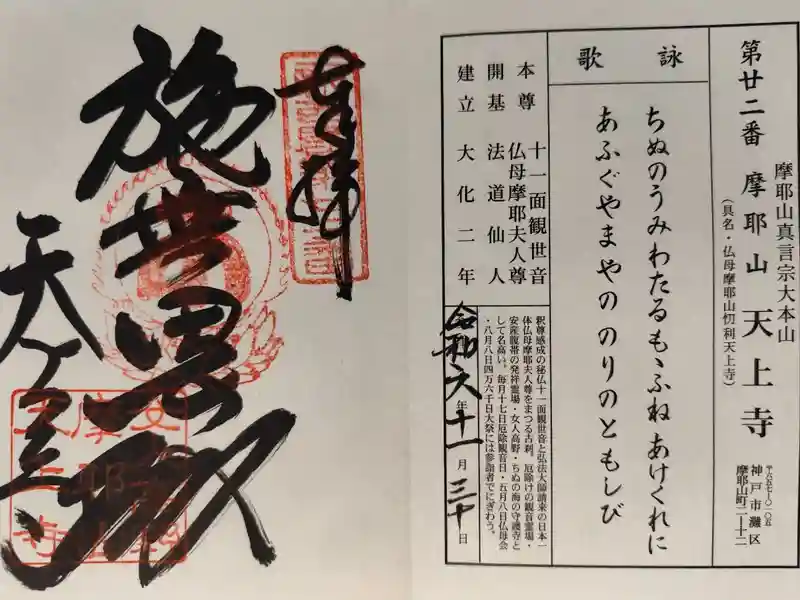 第廿二番 摩耶山 天上寺
摩耶山真言宗大本山
(具名・仏母摩耶山忉利天上寺)
〒六五七-〇一〇五
神戸市灘区
摩耶山町二-十二
詠歌
ちぬのうみわたるもゝふねあけくれに
あふぐやまやの のりのともしび
本尊 十一面観世音
仏母摩耶夫人尊
開基 法道仙人
建立 大化二年
釈尊感成の秘仏十一面観世音と弘法大師請来の日本一
体仏母摩耶夫人尊をまつる古刹。厄除けの観音霊場・
安産腹帯の発祥霊場・女人高野・ちぬの海の守護寺と
して名高い。毎月十七日厄除観音日・五月八日仏母会
・八月八日四万六千日大祭には参詣者でにぎわう。
令和六年十一月三十日
奉拝
施無畏殿
天上寺